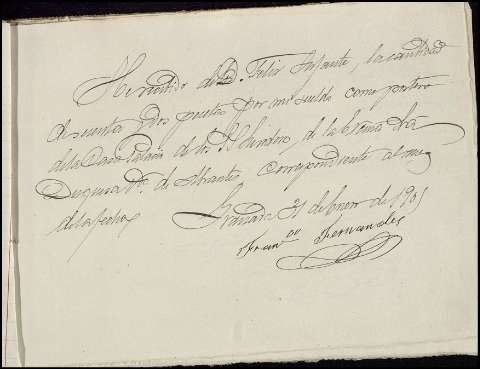 He recibido de D. Felix Infante, la cantidad
de sesenta y dos pesetas por mi sueldo como portero
de la Casa Palacio de los Shres de la Excma Sra
Duquesa Vda de Abrantes correspondiente al mes
de la fecha
Granada 31 de Enero de 1901
Franco Fernandez